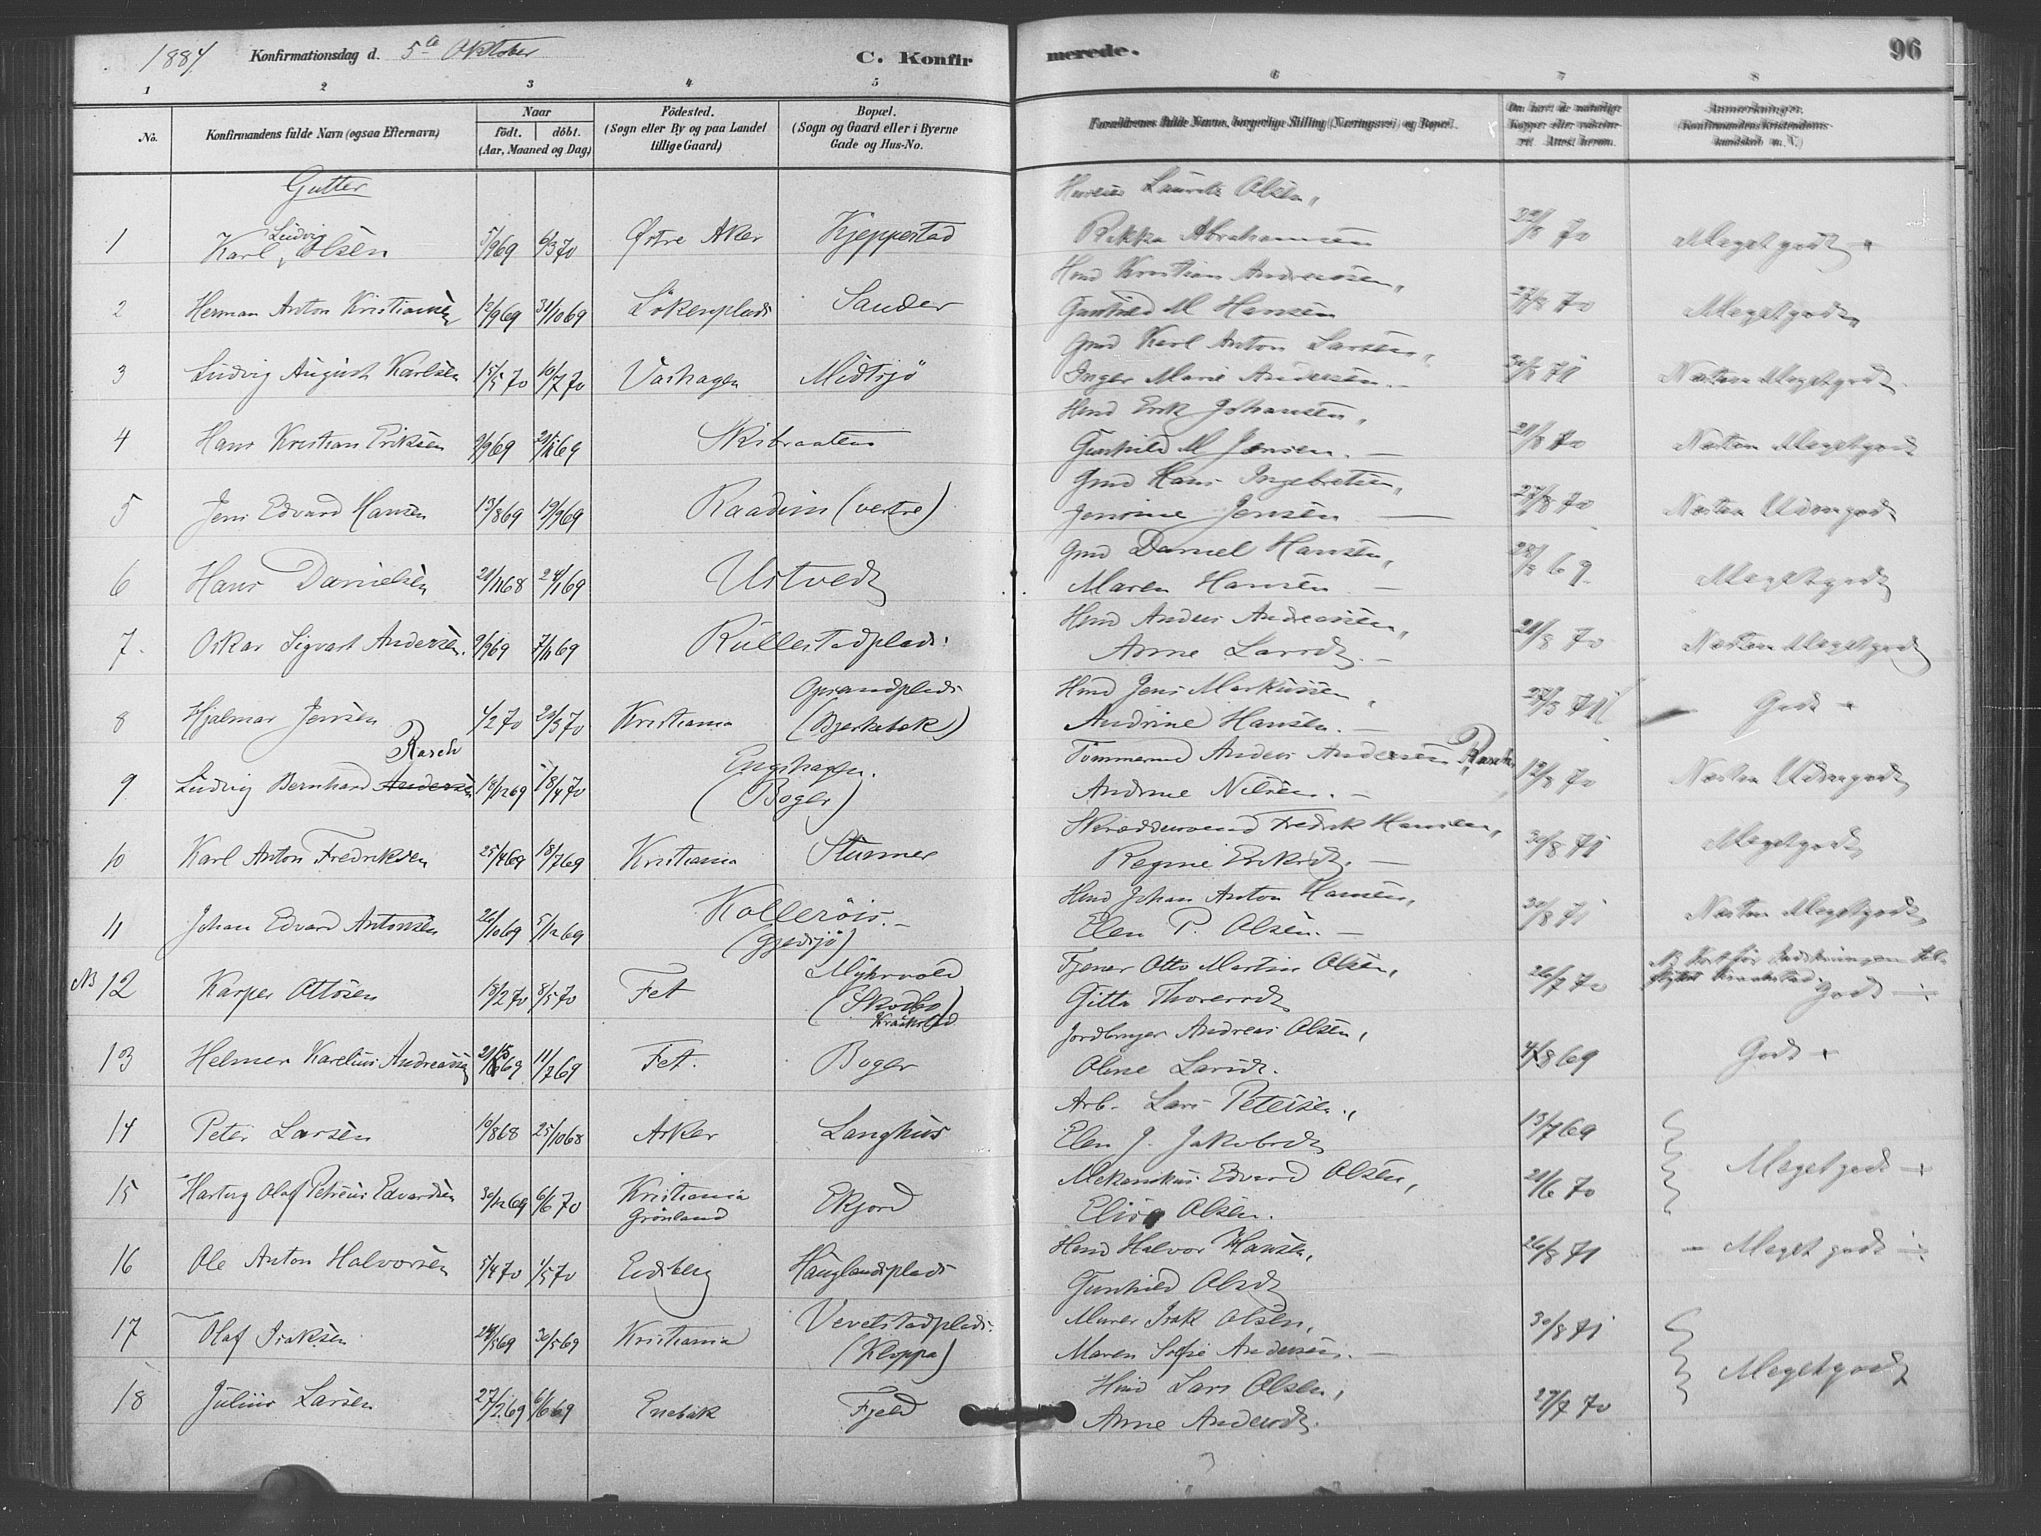 1884. Konfirmationsdag d. 5te Oktober C. Konfirmerede. 96
1 2 3 4 5 6 7 8
No. Konfirmandens fulde Navn (ogsaa Efternavn) Naar födt. döbt. (Aar, Maaned og Dag) Födested. (Sogn eller By og paa Landet tillige Gaard) Bopæl. (Sogn og Gaard eller i Byerne Gade og Hus-No.
Forældrenes fulde Navne, borgerlige Stilling (Næringsvei) og Bopæl. Anmærkninger. (Konfirmandens Kristendomskundskab m. V.)
Gutter
1 Karl Ludvig Olsen 5/9 69 6/3 70 Østre Aker Kjeppestad
Laurits Olsen,
Rikka Abrahamsen 70 Meget godt
2 Herman Anton Kristiansen 12/9 69 31/10 69 Lökenplads Sander
Hmd Kristian Andreassen,
Gunhild M Hansen 27/8 70 Megetgodt
3 Ludvig August Karlsen 15/5 70 10/7 70 Vashagen Midtsjö
Gmd Karl Anton Larsen,
Inger Marie Andersen. 30/8 71 Næsten Megetgodt
4 Hans Kristian Eriksen 9/9 69 Skibraaten
Hmd Erik Johansen,
Gunhild M Jensen. 21/8 70 Næsten Megetgodt
5 Jens Edvard Hansen 13/8 69 19/9 69 Raadim (vestre)
Gmd Hans Ingebretsen,
Jensine Jensen 27/8 70 Næsten Udmgodt
6 Hans Danielsen 21/11 68 24/1 69 Ustvedt
Gmd Daniel Hansen,
Maren Hansen 69 Megetgodt
7 Oskar Sigvart Andersen. 9/9 69 7/11 69 Rullestadplads.
Hmd Anders Andreassen,
Anne Larsdt. 21/8 70 Næsten Megetgodt
8 Hjalmar Jensen 4/2 70 20/3 70 Kristiania Opsandplads (Bjerkebæk)
Hmd Jens Markussen,
Andrine Hansen. 71 Godt
9 Ludvig Bernhard Andersen Rasch 18/12 69 18/4 70 Engshagen. (Boger)
Tömmermd Anders Andersen Rasch,
Andrine Nilsen. 12/8 70 Næsten Udmgodt
10 Karl Anton Fredriksen 25/4 69 18/7 69 Kristiania Stunner
Skræddersvend Fredrik Hansen,
Regine Eriksdt. 30/8 71 Megetgodt
11 Johan Edvard Antonsen 26/10 69 5/12 69 Kolleröis. (Gjedsjö)
Hmd Johan Anton Hansen,
Elen P. Olsen. 30/8 71 Næsten Megetgodt
NB 12 Kasper Ottosen 18/2 70 8/5 70 Fet Myhrvold (Skodbo) Kraakstad
Tjener Otto Martin Olsen,
Gitta Thoresdt 26/7 70 NB Kort før flyttet Kraakstad Godt
13 Helmer Karelius Andreassen 69 11/7 69 Fet. Boger
Jordbruger Andreas Olsen,
Oline Larsdt. 4/8 69 Godt
14 Peter Larsen 10/8 68 25/10 68 Asker Langhus
Arb. Lars Petersen.,
Elen J. Jakobsdt 13/7 69
15 Hartvig Olaf Petreus Edvardsen 30/12 69 6/6 70 Kristiania Grönland Ekjord
Mekanikus Edvard Olsen,
Elise Olsen. 21/6 70 Megetgodt
16 Ole Anton Halvorsen 5/4 70 1/5 70 Eidsberg Hauglandsplads
Hmd Halvor Hansen,
Gunhild Olsdt 26/8 71 Meget godt
17 Olaf Isaksen 69 30/5 69 Kristiania Vevelstadplads. (Kloppa)
Murer Isak Olsen,
Maren Sofie Andersen. 30/8 71
18 Julius Larsen 27/2 69 6/6 69 Enebak Fjeld
Hmd Lars Olsen,
Anne Andersdt. 27/7 70 Megetgodt